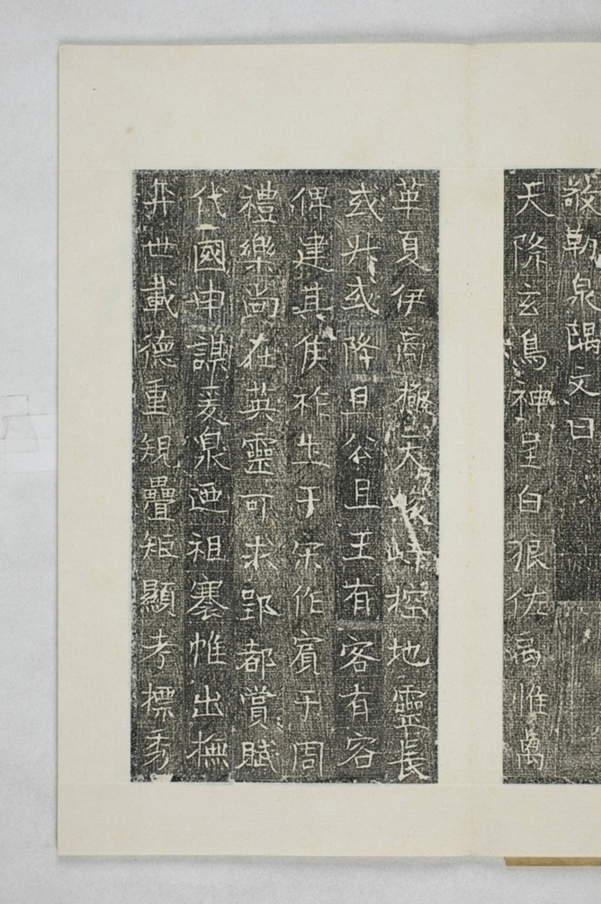 敬勒泉隅文曰
天降玄鳥神呈白狼佐禹惟禼
革夏伊商極天峻峙控地靈長
或升或降且公且王有客有容
俾建其侯祚土于宋作賓于周
禮樂尚在英靈可求郢都賞賦
代國申謀爰臮迺祖褰帷出撫
弈世載德重規疊矩顯考標秀